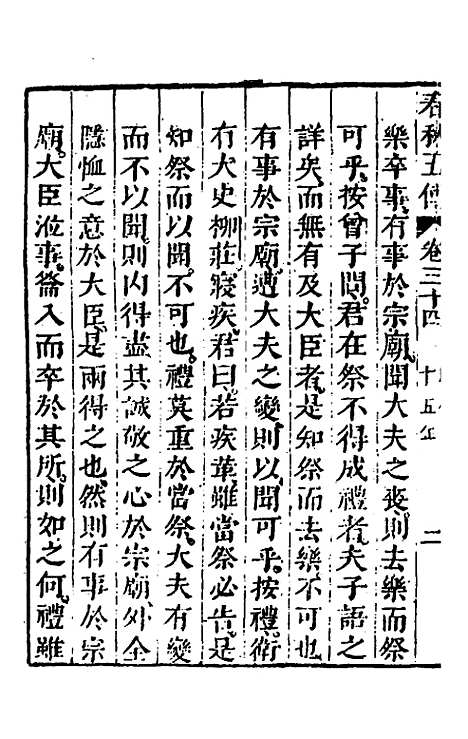 春秋五傳 卷三十四 十五年 二
樂卒事有事於宗廟聞大夫之喪則去樂而祭
可乎按曾子問君在祭不得成禮者夫子語之
詳矣而無有及大臣者是知祭而去樂不可也
有事於宗廟遭大夫之變則以聞可乎按禮衛
有大史柳莊寢疾君曰若疾革雖當祭必告是
知祭而以聞不可也禮莫重於當祭大夫有變
而不以聞則内得盡其誠敬之心於宗廟外全
隱恤之意於大臣是兩得之也然則有事於宗
廟大臣涖事籥入而卒於其所則如之何禮雖